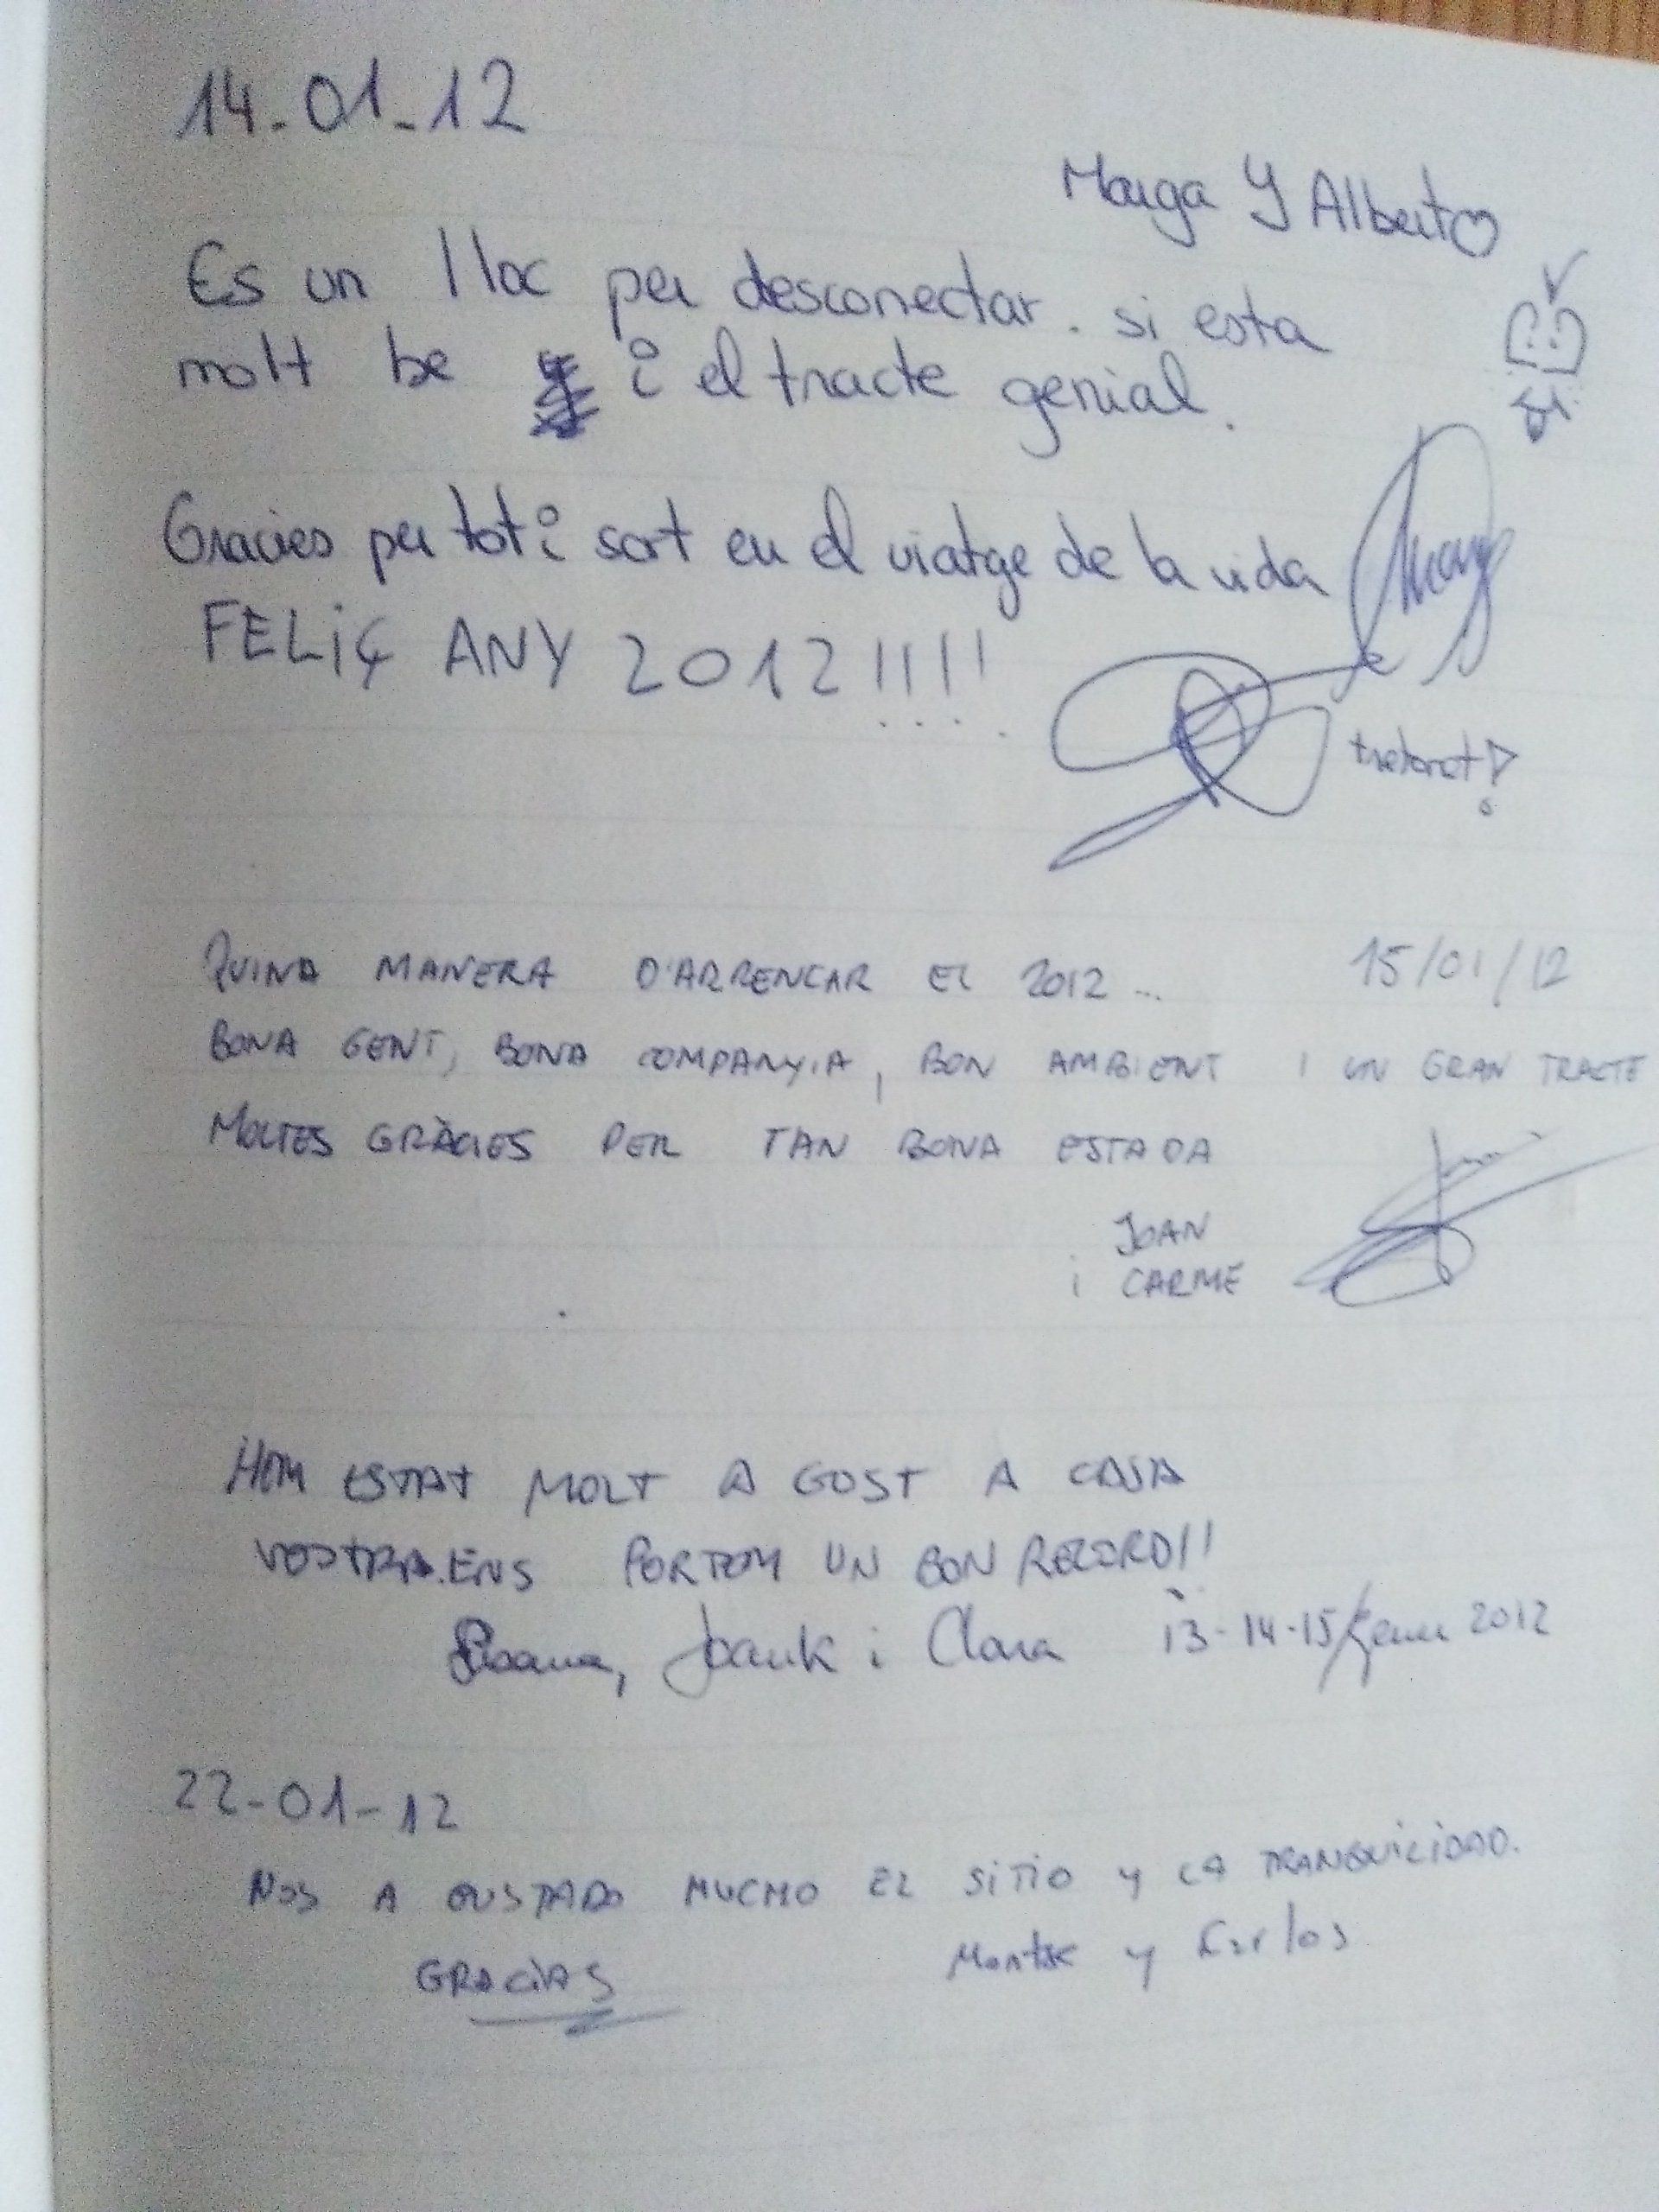 14-01-12
Marga Y Alberto
Es un lloc per desconectar. si esta
molt be i el tracte genial.
Gracies per tot i sort en el viatge de la vida
FELIÇ ANY 2012!!!!
QUINA MANERA D'ARRENCAR EL 2012... 15/01/12
BONA GENT, BONA COMPANYIA, BON AMBIENT I UN GRAN TRACTE
MOLTES GRÀCIES PER TAN BONA ESTADA
JOAN
i CARME
HEM ESTAT MOLT A GOST A CASA
VOSTRA. ENS PORTEM UN BON RECORD!!
Joank i Clara 13-14-15/Gener 2012
22-01-12
NOS A GUSTADO MUCHO EL SITIO Y LA TRANQUILIDAD.
GRACIAS Montse y Carlos